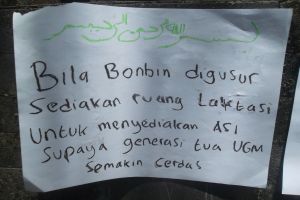 بسم الله الرحمن الرحيم
Bila Bonbin digusur
Sediakan ruang Laktasi
Untuk menyediakan ASI
Supaya generasi tua UGM
Semakin Cerdas